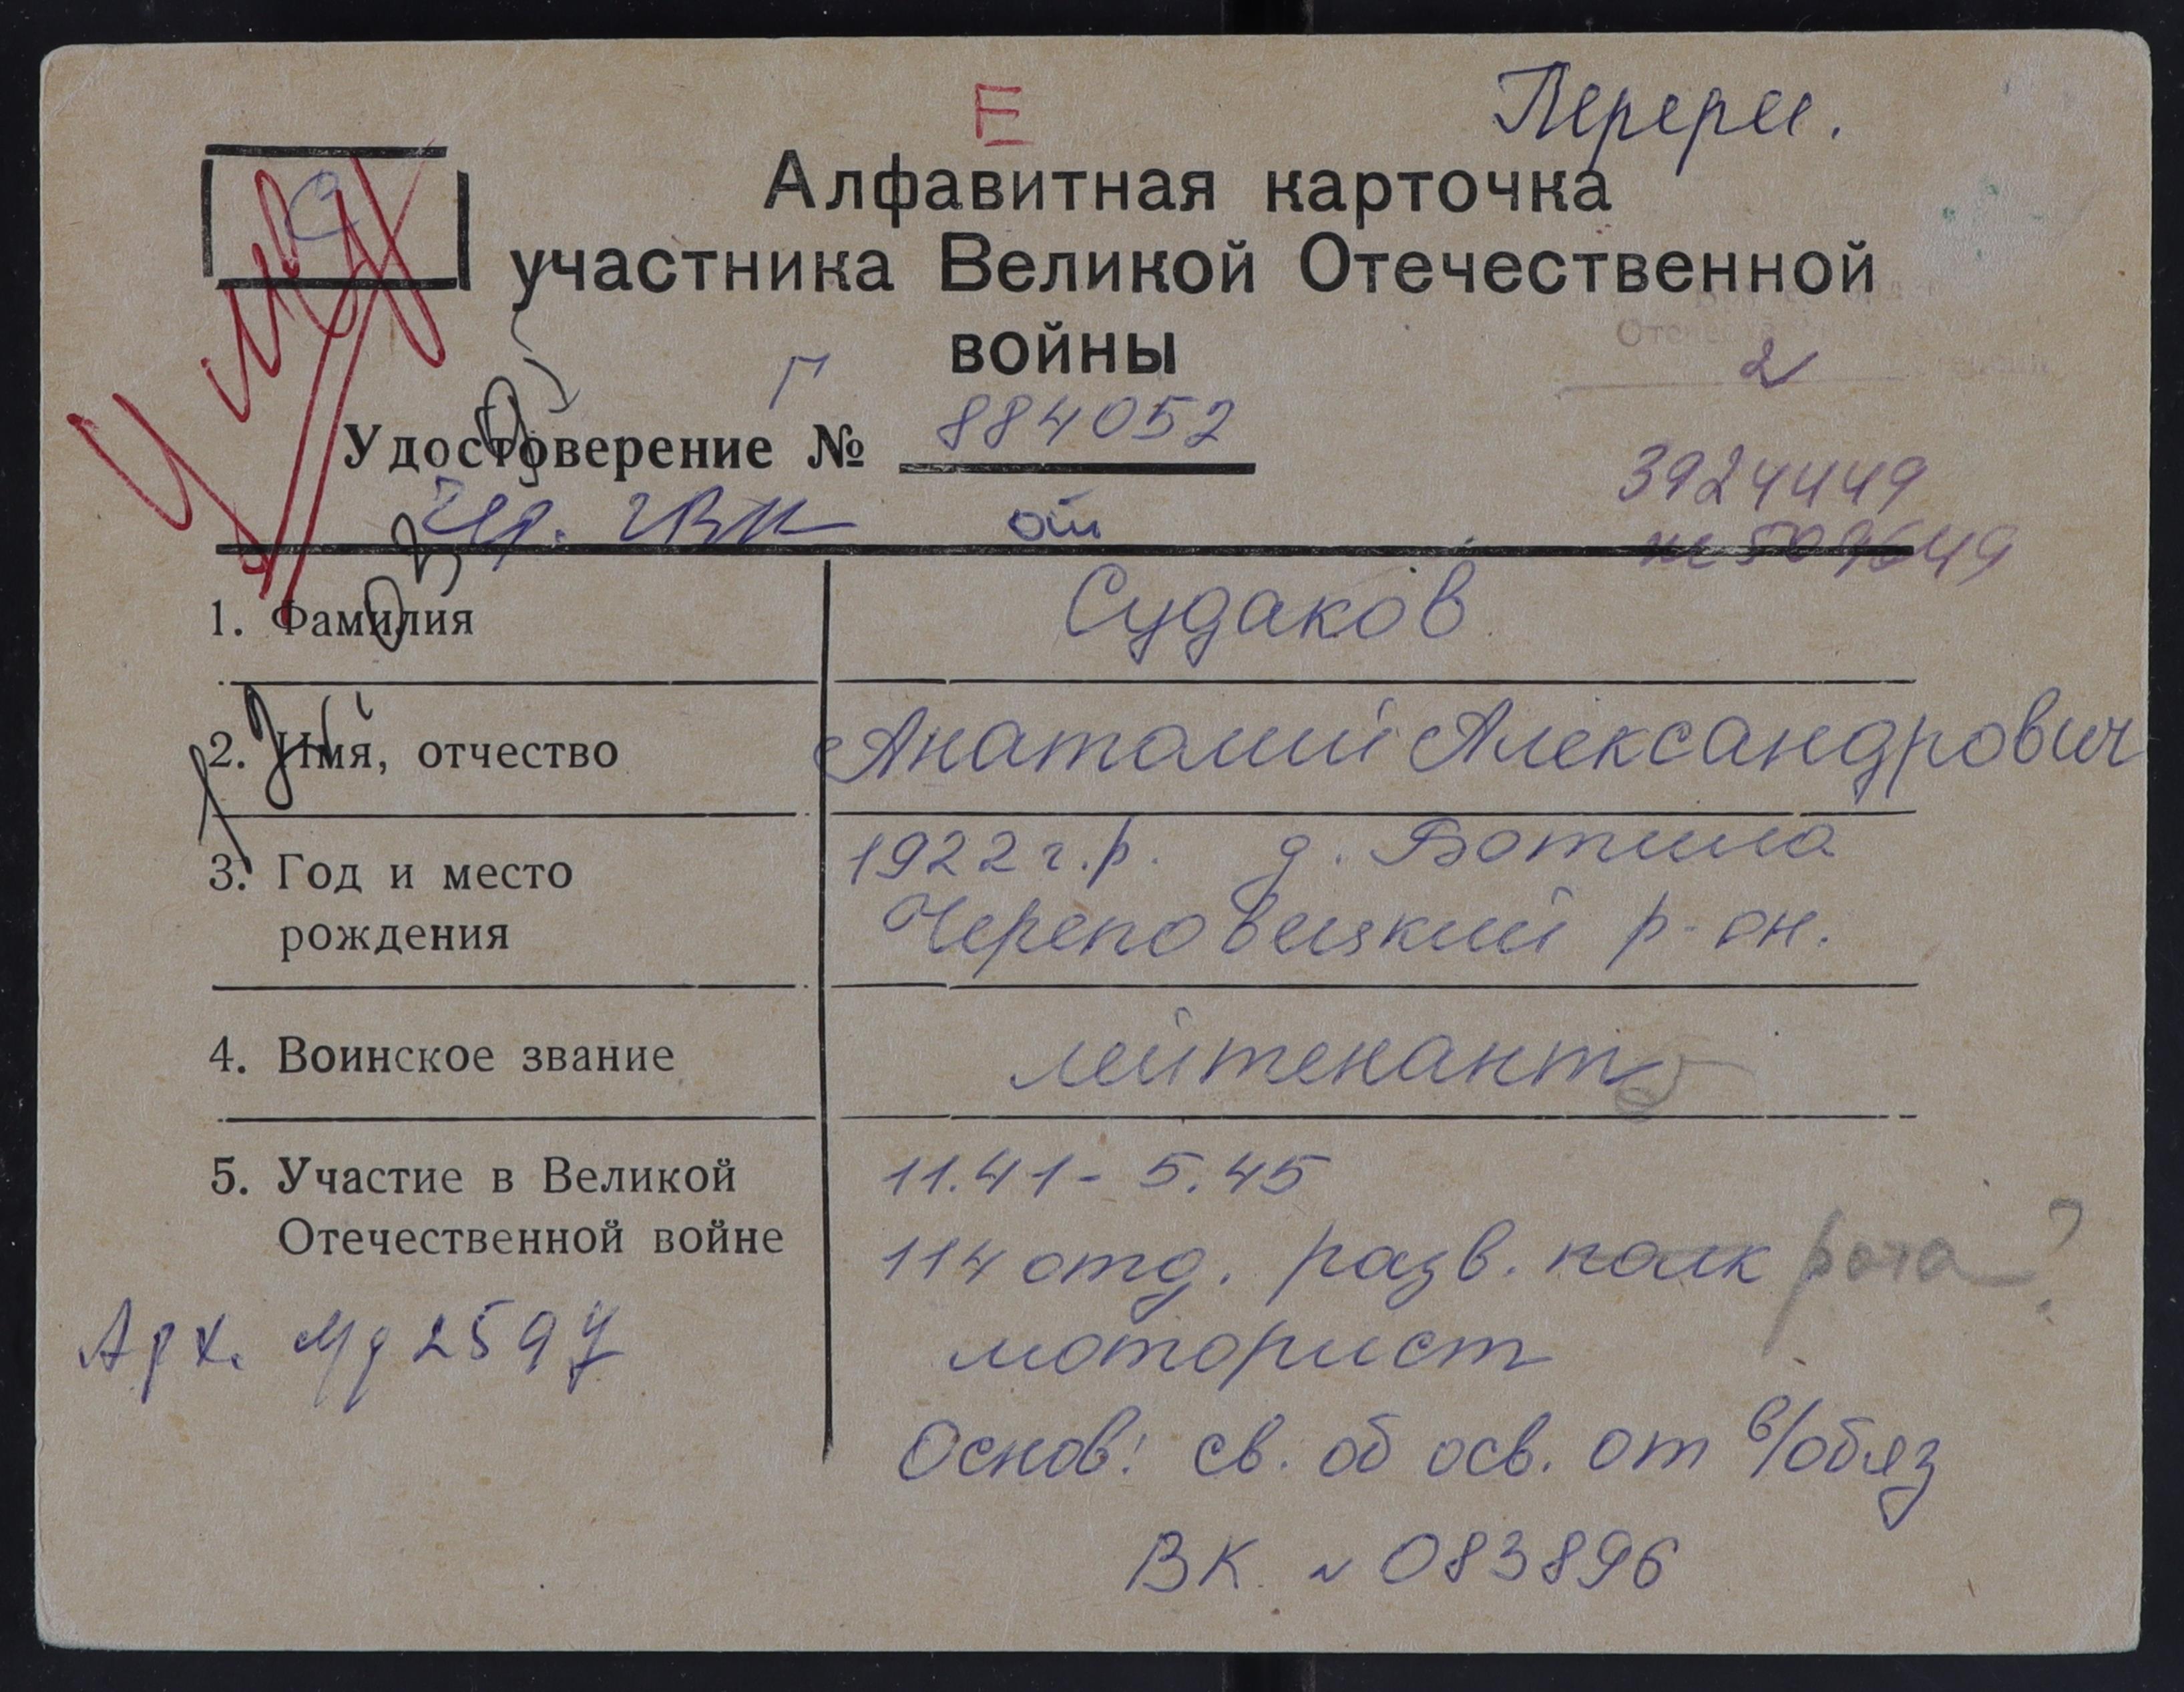 Е
Перерег.
С
Алфавитная карточка
участника Великой Отечественной
войны
2
Г
Удостоверение № 884052
3924449
Чер. ГВК от
№ 509649
умер
1. Фамилия Судаков
2. Имя, отчество Анатолий Александрович
3. Год и место 1922 г.р. д. Ботила
рождения Череповецкий р-он.
4. Воинское звание лейтенант
5. Участие в Великой 11.41 - 5.45
Отечественной войне 114 отд. разв. полк рота ?
Арх. Мд 2597 моторист
Основ: св. об осв. от в/обяз
ВК № 083896